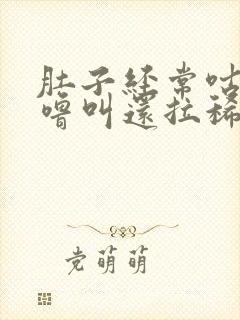 肚子经常咕
噜叫还拉稀
党萌萌